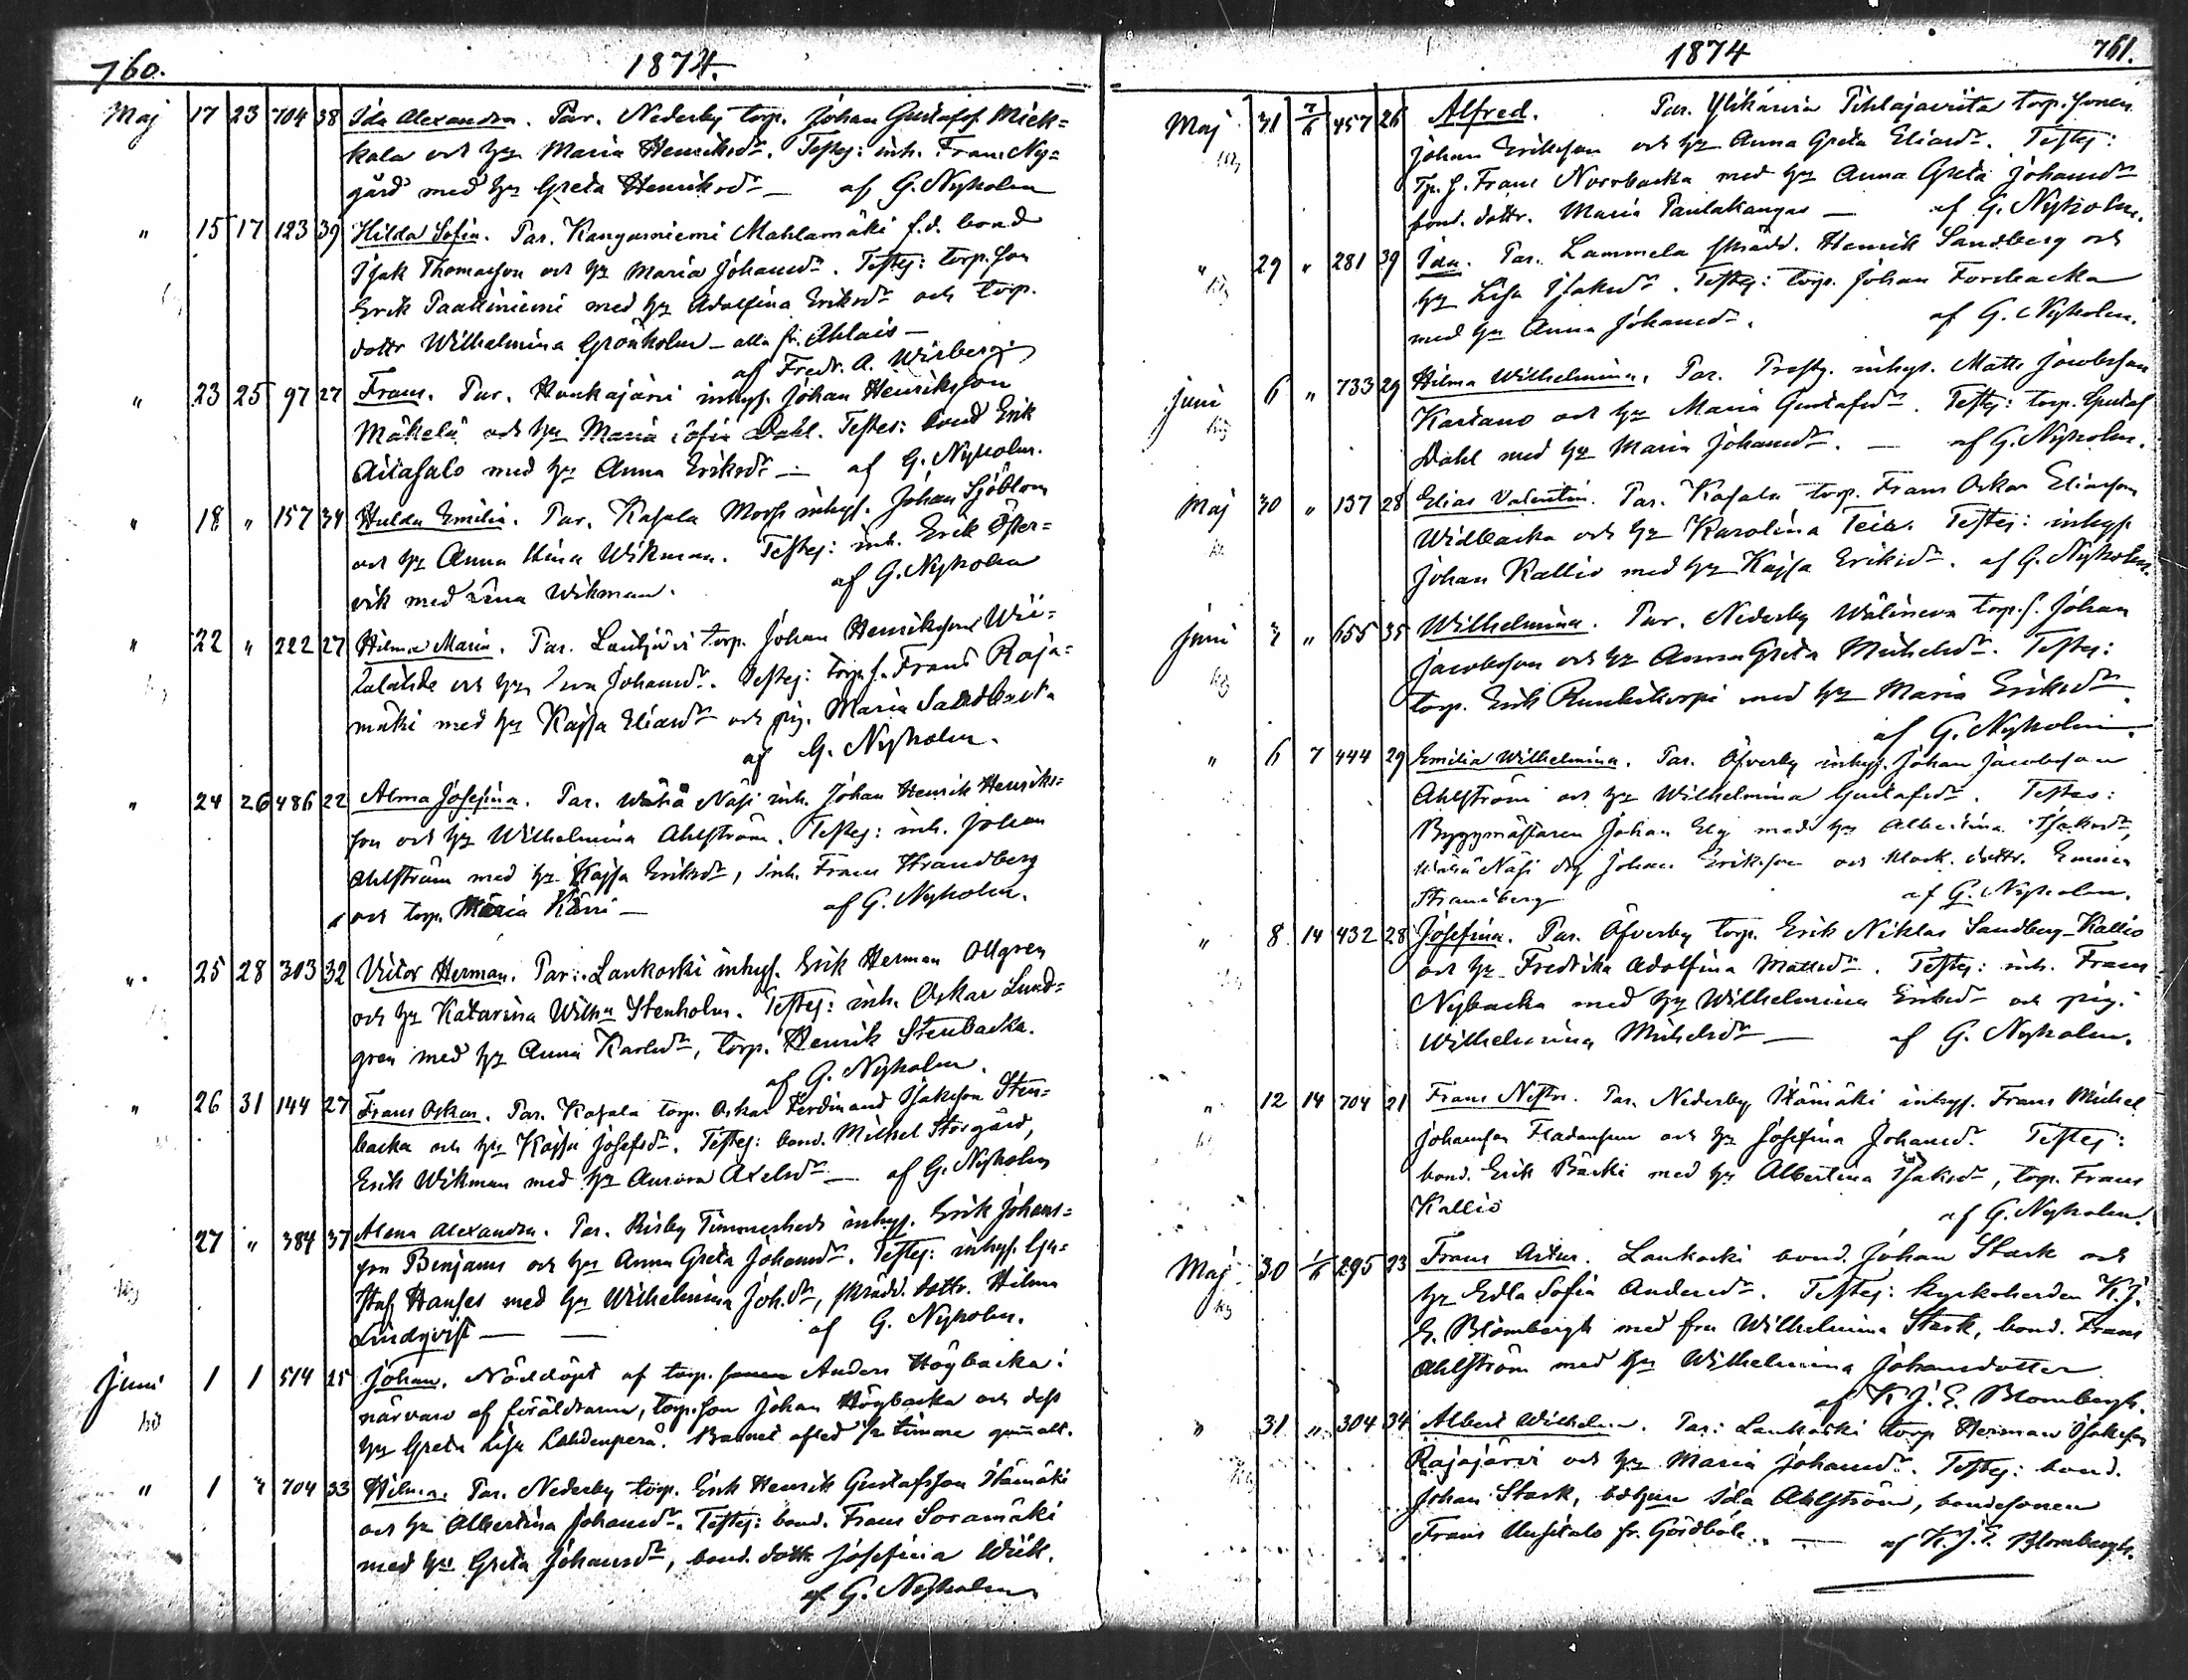 760. 1874.
Maj 17 23 704 38 Ida Alexandra. Par. Nederby torp. Johan Gustafss. Miek=
kala och hu Maria Henriksdr. Testes: inh. Frans Ny=
gård med hu Greta Henriksdr — af G. Nyholm
" 15 17 123 39 Hilda Sofia. Par. Kangasniemi Mahlamäki f.d. bond
Isak Thomasson och hu Maria Johansdr. Testes: torp. son
Erik Paakiniemi med hu Adolfina Eriksdr och torp.
dottr Wilhelmina Grönholm — alla fr. Ahlais —
af Fredr. A. Wirberg
" 23 25 97 27 Frans. Par. Honkajärvi inhys. Johan Henriksson
Mäkelä och hu Maria Sofia Dahl. Testes: bond Erik
Aitasalo med hu Anna Eriksdr — af G. Nyholm.
" 18 " 157 34 Hulda Emilia. Par. Kasala inhys. Johan Sjöblom
och hu Anna Stina Wikman. Testes: inh. Erik Öster=
vik med Wikman. af G. Nyholm
" 22 " 222 27 Hilma Maria. Par. Lautjärvi torp. Johan Henriksson Wii=
talähde och hu Johansdr. Testes: torp. s. Frans Raja=
mäki med hu Kajsa Eliasdr och pig. Maria Sandbacka
af G. Nyholm.
" 24 26 486 22 Alma Josefina. Par. Wähä Näsi inh. Johan Henrik Henriks=
son och hu Wilhelmina Ahlström. Testes: inh. Johan
Ahlström med hu Kajsa Eriksdr, inh. Frans Strandberg
och torp. Maria Kärri — af G. Nyholm.
" 25 28 303 32 Victor Herman. Par: Lankoski inhys. Erik Herman Ollgren
och hu Katarina Wilhna Stenholm. Testes: inh. Oskar Lund=
gren med hu Anna Karlsdr, torp. Henrik Stenbacka.
af G. Nyholm.
" 26 31 144 27 Frans Oskar. Par. Kasala torp. Oskar Ferdinand Isaksson Sten=
backa och hu Kajsa Josefsdr. Testes: bond. Mikhel Storgård,
Erik Wikman med hu Aurora Axelsdr — af G. Nyholm
27 " 384 37 Alena Alexandra. Par. Risby Timmerheds inhys. Erik Johans=
son Benjams och hu Anna Greta Johansdr. Testes: inhys. Gu=
staf Hanses med hu Wilhelmina Joh.dr, skrädd. dottr. Hilma
Lindqvist — — af G. Nyholm.
Juni 1 1 514 25 Johan. Nöddöpt af torp. Anders Högbacka i
närvaro af föräldrarne, torp. son Johan Högbacka och dess
hu Greta Lisa Lahdenperä. Barnet afled ½ timme gammalt.
" 1 3 704 33 Hilma. Par. Nederby torp. Erik Henrik Gustafsson Itämäki
och hu Albertina Johansdr. Testes: bond. Frans Soramäki
med hu Greta Johansdr, bond. dottr Josefina Wiik.
af G. Nyholm
1874 761.
Maj 31 7/6 457 26 Alfred. Par. Ylikärvia Pihlajaviita torp. sonen
Johan Eriksson och hu Anna Greta Eliasdr. Testes:
Tp. s. Frans Norrbacka med hu Anna Greta Johansdr
bond. dottr. Maria Paulakangas — af G. Nyholm.
" 29 " 281 39 Ida. Par. Lammela skrädd. Henrik Sandberg och
hu Lisa Isaksdr. Testes: torp. Johan Forsbacka
med hu Anna Johansdr. af G. Nyholm.
Juni 6 " 733 29 Hilma Wilhelmina. Par. Prestg. inhys. Matts Jacobsson
Kartano och hu Maria Gustafsdr. Testes: torp. Gustaf
Dahl med hu Maria Johansdr. — af G. Nyholm.
Maj 30 " 137 28 Elias Valentin. Par. Kasala torp. Frans Oskar Eliasson
Widbacka och hu Karolina Teir. Testes: inhys.
Johan Kallio med hu Kajsa Eriksdr. af G. Nyholm.
Juni 3 " 655 35 Wilhelmina. Par. Nederby Wälineva torp. s. Johan
Jacobsson och hu Anna Greta Michelsdr. Testes:
torp. Erik med hu Maria Eriksdr
af G. Nyholm.
" 6 7 444 29 Emilia Wilhelmina. Par. Öfverby inhys. Johan Jacobsson
Ahlström och hu Wilhelmina Gustafsdr. Testes:
Byggmästaren Johan Elg med hu Albertina Isaksdr,
Wähä Näsi drg Johan Eriksson och klock. dottr. Emma
Strandberg af G. Nyholm.
" 8 14 432 28 Josefina. Par. Öfverby torp. Erik Niklas Sandberg-Kallio
och hu Fredrika Adolfina Mattsdr. Testes: inh. Frans
Nybacka med hu Wilhelmina Eriksdr och pig.
Wilhelmina Michelsdr — af G. Nyholm.
" 12 14 704 21 Frans Nestor. Par. Nederby Itämäki inhys. Frans Michel
Johansson och hu Josefina Johansdr. Testes:
bond. Erik Bäcki med hu Albertina Isaksdr, torp. Frans
Kallio af G. Nyholm.
Maj 30 1/6 295 23 Frans Artur. Lankoski bond. Johan Stark och
hu Edla Sofia Andersdr. Testes: kyrkoherden K. J.
E. Blombergh med fru Wilhelmina Stark, bond. Frans
Ahlström med hu Wilhelmina Johansdotter
af K J. E. Blombergh.
" 31 " 304 34 Albert Wilhelm. Par: Lankoski torp Herman Isaksson
Rajajärvi och hu Maria Johansdr. Testes: bond.
Johan Stark, Ida Ahlström, bondesonen
Frans Uusitalo fr. Gördböle. — af K. J. E. Blombergh.